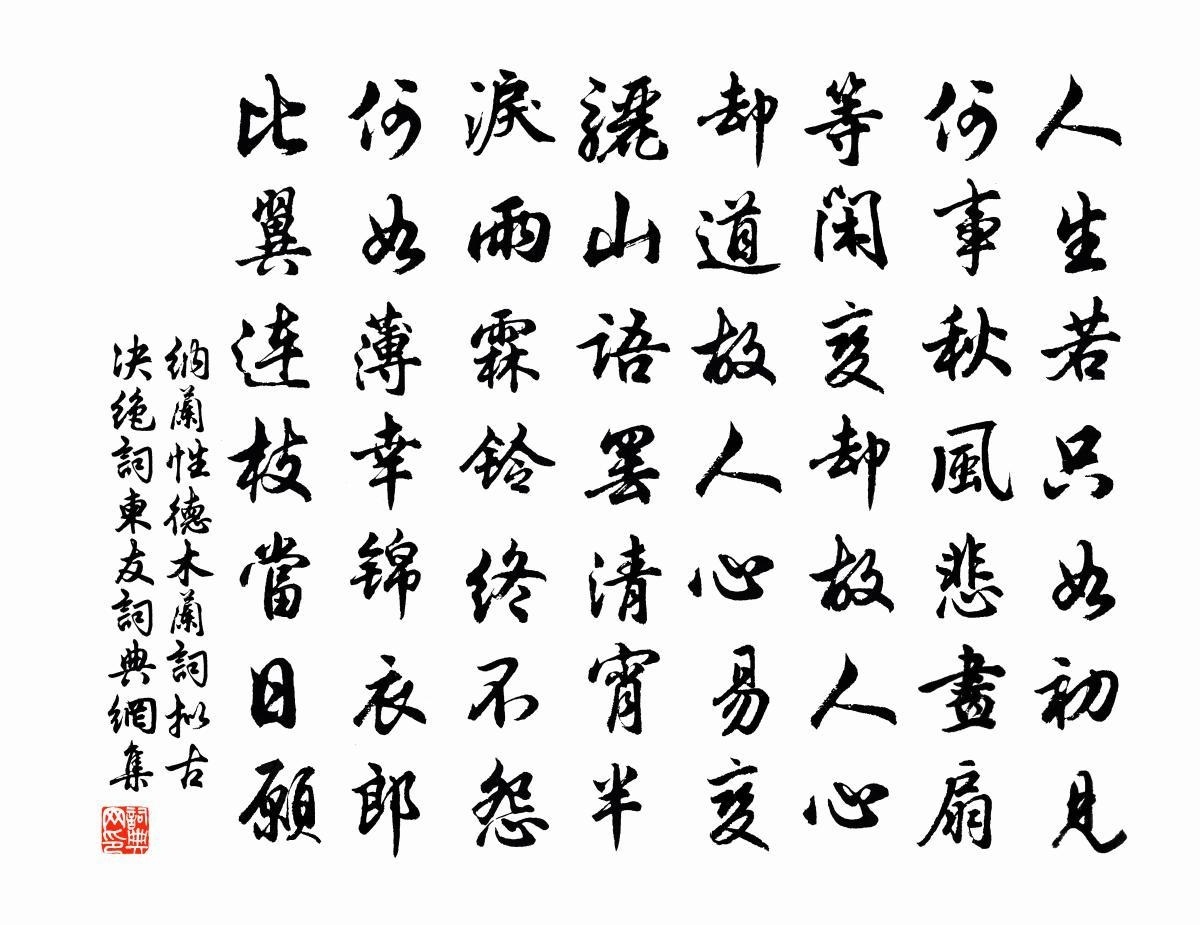 人生若只如初見
何事秋風悲畫扇
等閑變却故人心
却道故人心易變
驪山語罷清宵半
淚雨霖鈴終不怨
何如薄幸錦衣郎
比翼連枝當日願
納蘭性德木蘭詞拟古
决絶詞東友詞典網集
詞典
网印